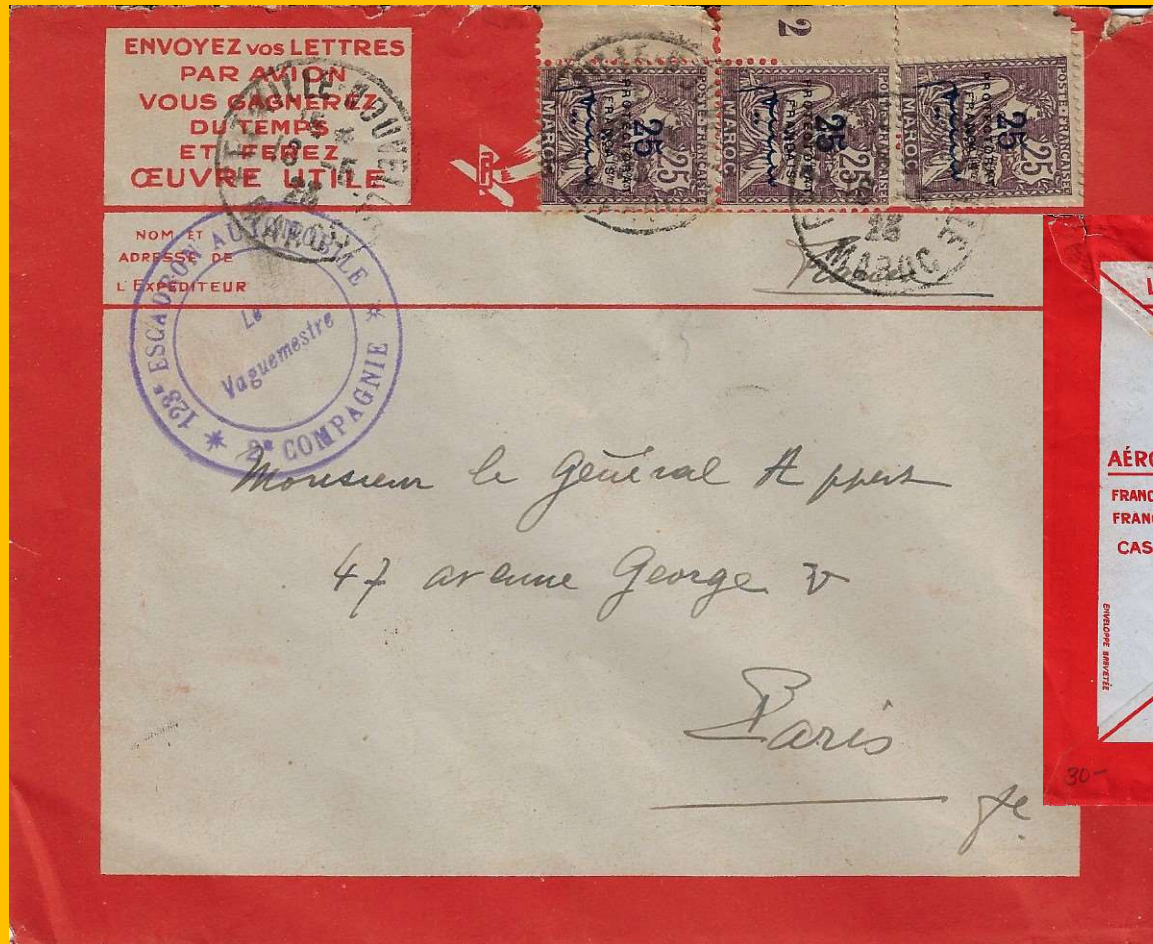 ENVOYEZ vos LETTRES
PAR AVION
VOUS GAGNEREZ
DU TEMPS
ET FEREZ
ŒUVRE UTILE
2
25
POSTE FRANÇAISE
PROTECTORAT
FRANÇAIS
MAROC
25
25
POSTE FRANÇAISE
PROTECTORAT
FRANÇAIS
MAROC
25
25
POSTE FRANÇAISE
PROTECTORAT
FRANÇAIS
MAROC
25
MAROC
NOM ET
ADRESSE DE
L'EXPÉDITEUR
123e ESCADRON AUTOMOBILE
Le
Vaguemestre
2e COMPAGNIE
Monsieur le Général Appert
47 avenue George V
Paris
AÉRO
FRANC
FRANC
CAS
ENVELOPPE BREVETÉE
30-